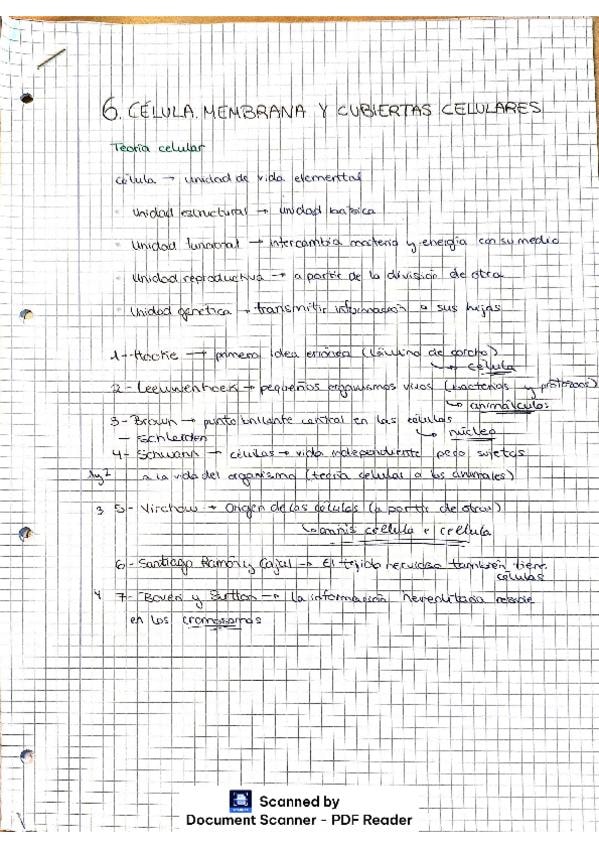 6. CÉLULA. MEMBRANA Y CUBIERTAS CELULARES
Teoría celular
célula → unidad de vida elemental
- unidad estructural → unidad básica
- Unidad funcional → intercambia materia y energía con su medio
- Unidad reproductiva → a partir de la división de otra
- Unidad genética → transmitir información a sus hijas
1- Hooke → primera idea errónea (lámina de corcho)
↳ célula
2- Leeuwenhoek → pequeños organismos vivos (bacterias y protozoos)
↳ animálculos
3- Brown → punto brillante central en las células
↳ núcleo
- Schleiden
4- Schwann → células → vida independiente pero sujetas
1 y 2 a la vida del organismo (teoría celular a los animales)
3 5- Virchow → Origen de las células (a partir de otras)
↳ omnis cellula e cellula
6- Santiago Ramón y Cajal → El tejido nervioso también tiene
células
4 7- Boveri y Sutton → la información hereditaria reside
en los cromosomas
Scanned by
Document Scanner - PDF Reader